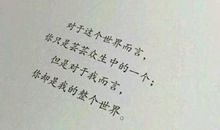 对于这个世界而言，
你只是芸芸众生中的一个；
但是对于我而言，
你却是我的整个世界。